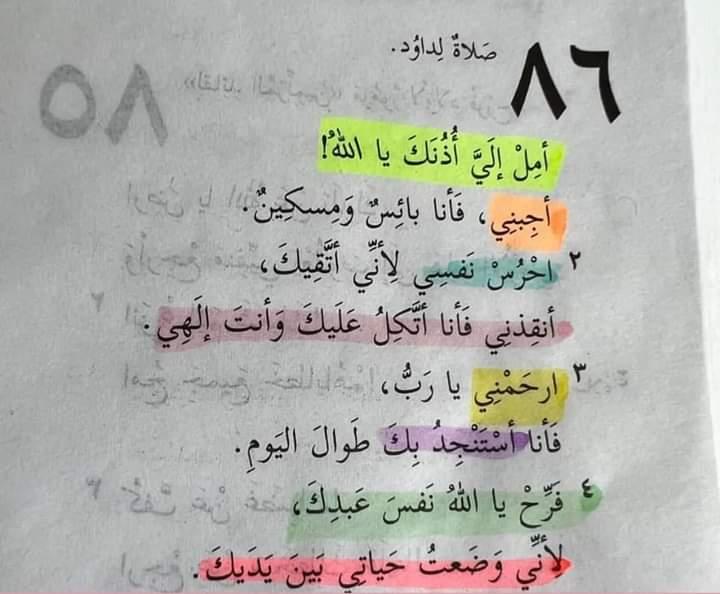 ٨٦ صَلاةٌ لِداوُد.
أمِلْ إلَيَّ أُذُنَكَ يا اللهُ!
أجِبنِي، فَأنا بائِسٌ وَمِسكِينٌ.
٢ احْرُسْ نَفسِي لِأنِّي أتَّقِيكَ،
أنقِذنِي فَأنا أتَّكِلُ عَلَيكَ وَأنتَ إلَهِي.
٣ ارحَمْنِي يا رَبُّ،
فَأنا أسْتَنْجِدُ بِكَ طَوالَ اليَومِ.
٤ فَرِّحْ يا اللهُ نَفسَ عَبدِكَ،
لِأنِّي وَضَعتُ حَياتِي بَينَ يَدَيكَ.